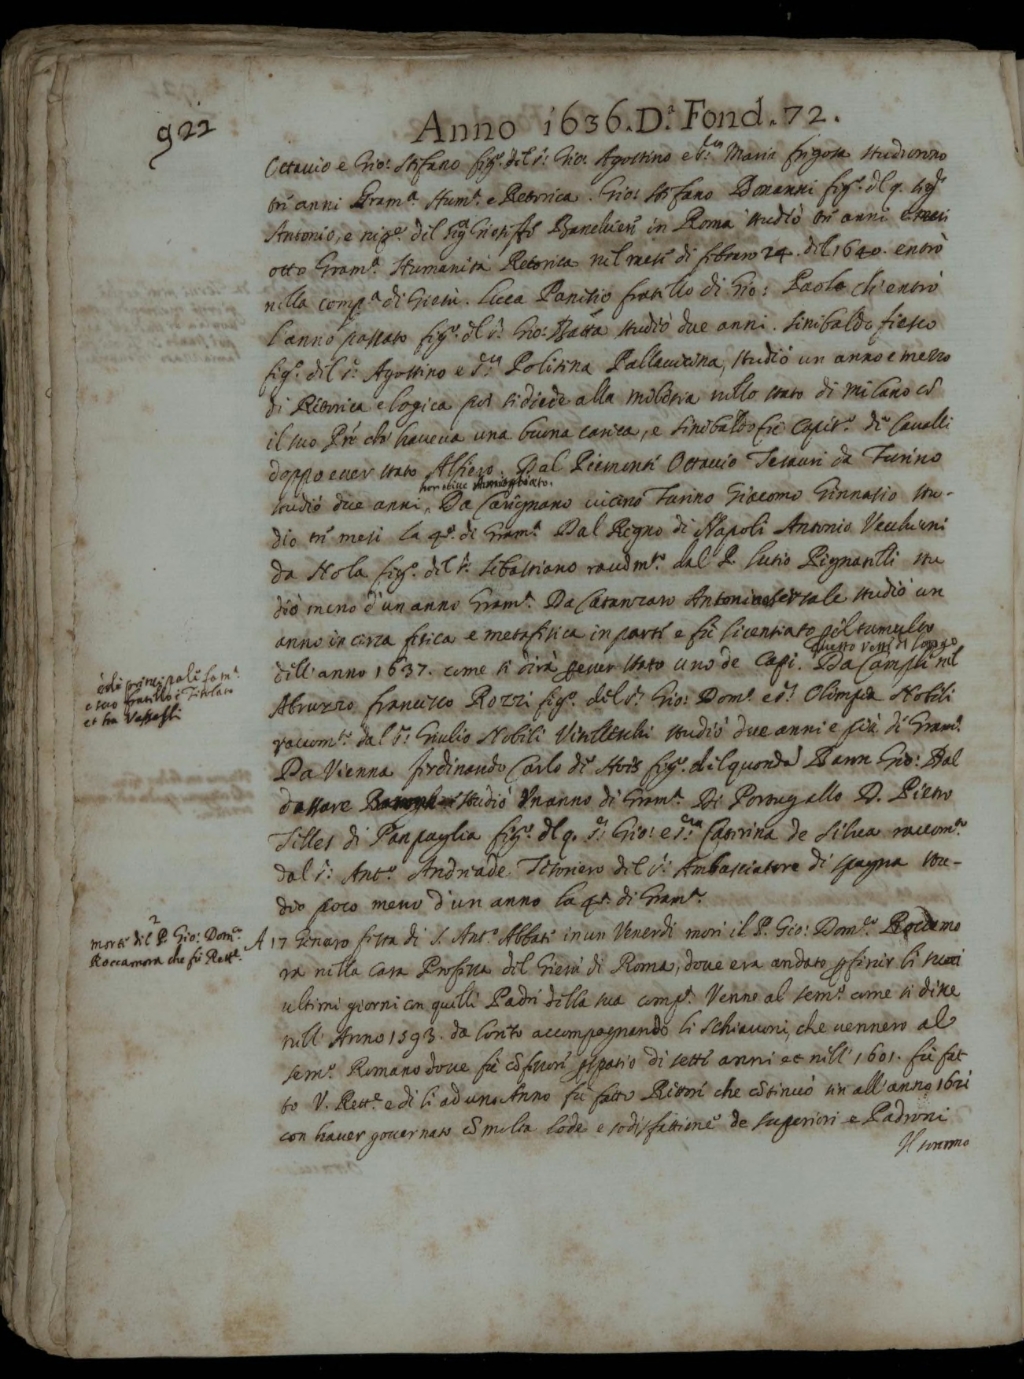 922
Anno 1636. D.ª Fond. 72.
Ottavio e Gio: Stefano fig.ⁱ del S.ʳ Gio: Agostino e S.ʳᵃ Maria studiorno
trè anni Gram.ª Hum.ª e Retorica. Gio: Stefano Bonanni fig.º dl q. Sig.ʳ
Antonio, e nip.ᵉ del Sig.ʳ Banchieri in Roma studiò trè anni e mesi
otto Gram.ª Humanità Retorica nel mese di febraro 24. del 1640. entrò
nella comp.ª di Giesù. Luca Panesio fratello di Gio: Paolo ch'entrò
l'anno passato fig.º dl S.ʳ Gio: Batta studiò due anni. Sinibaldo fiesco
fig.º del S.ʳ Agostino e S.ʳᵃ Polisena Pallavicina, studiò un anno e mezzo
di Retorica e logica poi si diede alla militia nello stato di Milano cõ
il suo Prè che haveva una buona carica, e Sinibaldo fù Capit.º di Cavalli
doppo esser stato Alfiero. Dal Piemonte Ottavio Tesauri da Turino
studiò due anni. Da Carignano vicino Turino Giacomo Ginnasio stu-
diò trè mesi la 4.ª di Gram.ª Dal Regno di Napoli Antonio Vecchioni
da Nola fig.º del S.ʳ Sebastiano racom.º dal P. Lutio Pignatelli stu
diò meno d'un anno Gram.ª Da Catanzaro Antonino Sersale studiò un
anno in circa fisica e metafisica in parte e fù licentiato p il tumulto
dell'anno 1637. come si dirà p esser stato uno de Capi. Da Campli nel
Abruzzo francesco Rozzi fig.º del S.ʳ Gio: Dom.º e S.ʳᵃ Olimpia Nobili
raccom.º dal S.ʳ Giulio Nobili Vitelleschi studiò due anni e più di Gram.ª
Da Vienna ferdinando Carlo di fig.º del quondã Baron Gio: Bal
dassare studiò un anno di Gram.ª Di Portugallo D. Pietro
Telles di fig.º dl q. S.ʳ Gio: e S.ʳᵃ Caterina de Silva raccom.º
dal S.ʳ Ant.º Andriade Tesoriero del S.ʳ Ambasciatore di Spagna stu-
diò poco meno d'un anno la 4.ª di Gram.ª
A 17 Genaro festa di S. Ant.º Abbate in un Venerdì morì il P. Gio: Dom.º Roccamo
ra nella Casa Professa del Giesù di Roma, dove era andato p finir li suoi
ultimi giorni con quelli Padri della sua comp.ª Venne al Sem.º come si disse
nell'Anno 1593. da Loreto accompagnando li Schiavoni, che vennero al
Sem.º Romano dove fù cõfessore p spatio di sette anni et nell'1601. fù fat
to V. Rett.ᵉ e di lì ad uno Anno fù fatto Rettore che cõtinuò sin all'anno 1621
con haver governato cõ molta lode e sodisfattione de superiori e Padroni
Il sommo
è dè principali fam.ᵉ
e suo fratello è Titolato
et ha Vassalli
morte del P. Gio: Dom.º
Roccamora che fù Rett.ᵉ